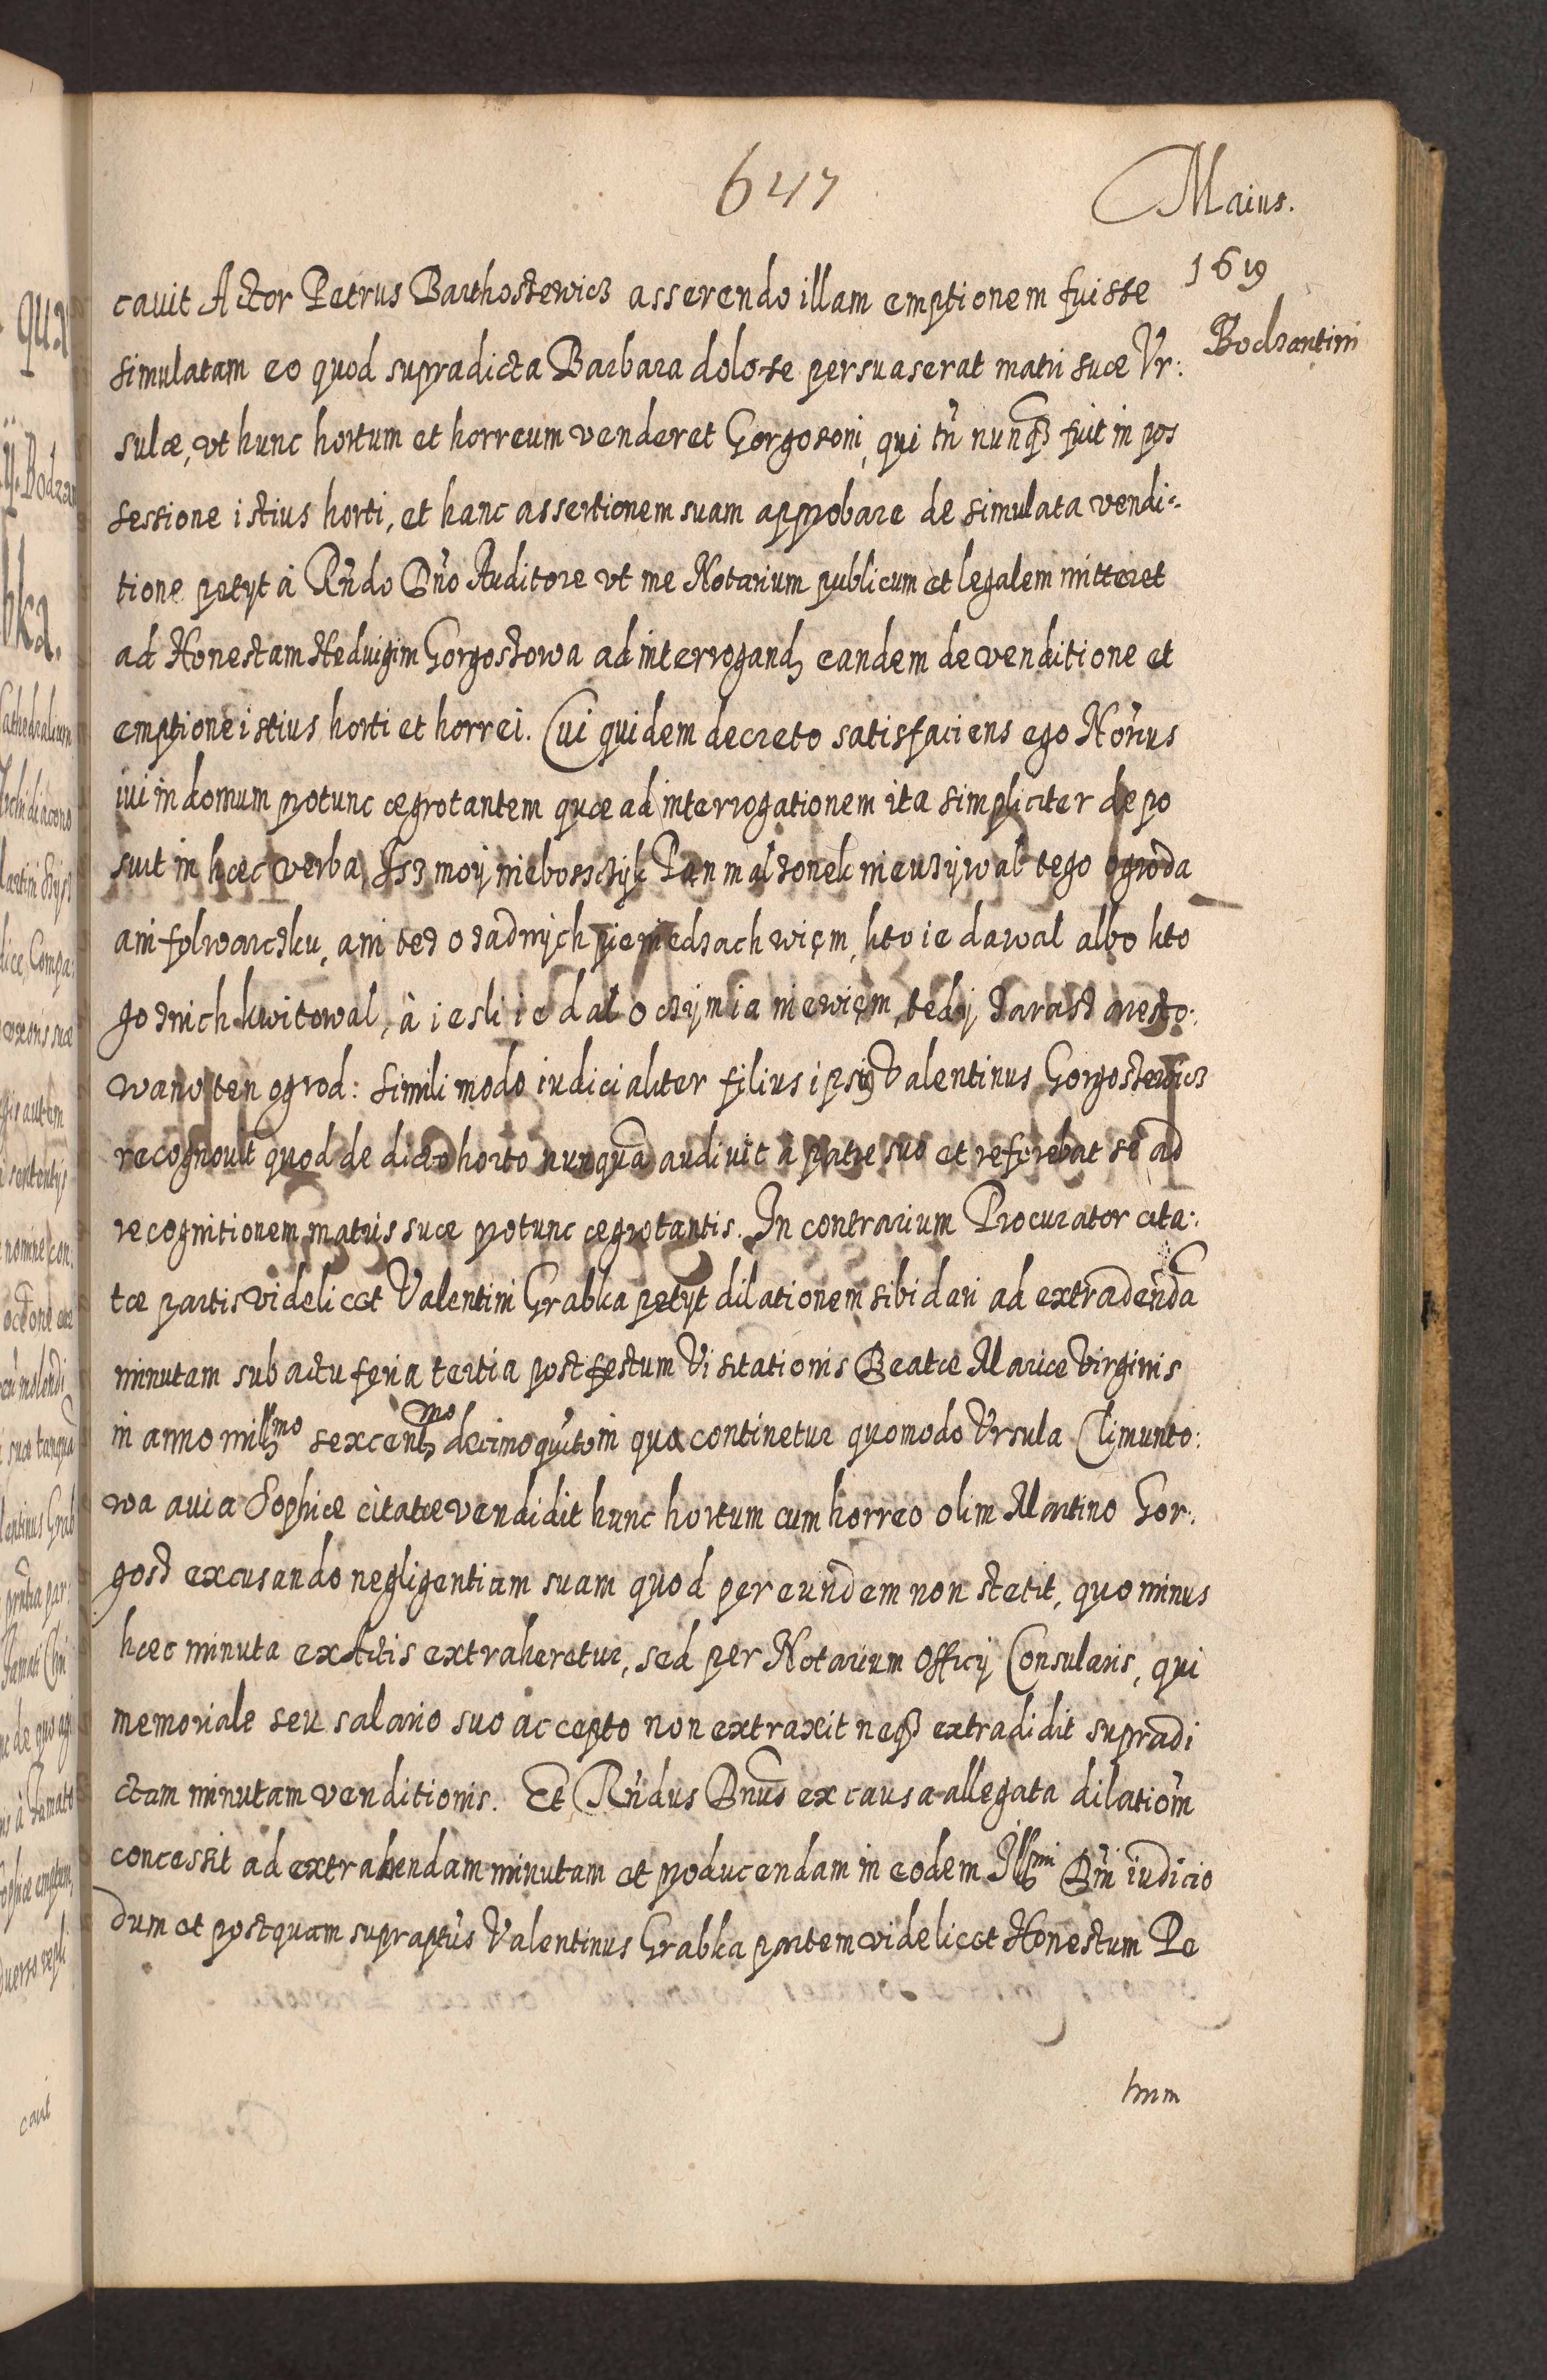 647
Maius.
1619
Bodzantini
cauit Actor Petrus Barthosżewicz asserendo illam emptionem fuisse
simulatam eo quod supradicta Barbara dolose persuaserat matri suæ Vr:
sulæ, vt hunc hortum et horreum venderet Gorgosoni, qui tñ nunqȝ fuit in pos
sessione istius horti, et hanc assertionem suam approbare de simulata vendi:
tione petyt à Rńdo Dńo Auditore vt me Notarium publicum et legalem mitteret
ad Honestam Heduigim Gorgosżowa ad interrogandȝ eandem de venditione et
emptione istius horti et horrei. Cui quidem decreto satisfaciens ego Nór̃ius
iui in domum protunc ægrotantem quæ ad interrogationem ita simpliciter depo
suit in hæc verba, Isz moÿ niebosscżÿk Pan małżonek nieużÿwał tego ogroda
ani folwarcżku, ani też o żadnÿch pieniedzach więm, kto ie dawał albo kto
go żnich kwitowal, à iesli ie dał o cżÿm ia niewięm, tedÿ żarasż aresto:
wano ten ogrod: simili modo iudicialiter filius ipsiꝰ Valentinus Gorgosżewicz
recognouit quod de dicto horto nunquā audiuit à patre suo et referebat se ad
recognitionem matris suæ protunc ægrotantis. In contrarium Procurator cita:
tæ partis videlicet Valentini Grabka petyt dilationem sibi dari ad extradendā
minutam sub actu feria tertia post festum Visitationis Beatæ Mariæ Virginis
in anno millȝmo sexcentȝmo decimoquĩto in qua continetur quomodo Vrsula Climunto:
wa auia Sophiæ citatæ vendidit hunc hortum cum horreo olim Martino Gor:
gosż excusando negligentiam suam quod per eundem non stetit, quo minus
hæc minuta ex Actis extraheretur, sed per Notarium Officÿ Consularis, qui
memoriale seu salario suo accepto non extraxit neqȝ extradidit supradi
ctam minutam venditionis. Et Rńdus Dnus ex causa allegata dilatiom̃
concessit ad extrahendam minutam et producendam in eodem Illȝmi Dńi iudicio
dum et postquam supraptũs Valentinus Grabka partem videlicet Honestum Pe
trum